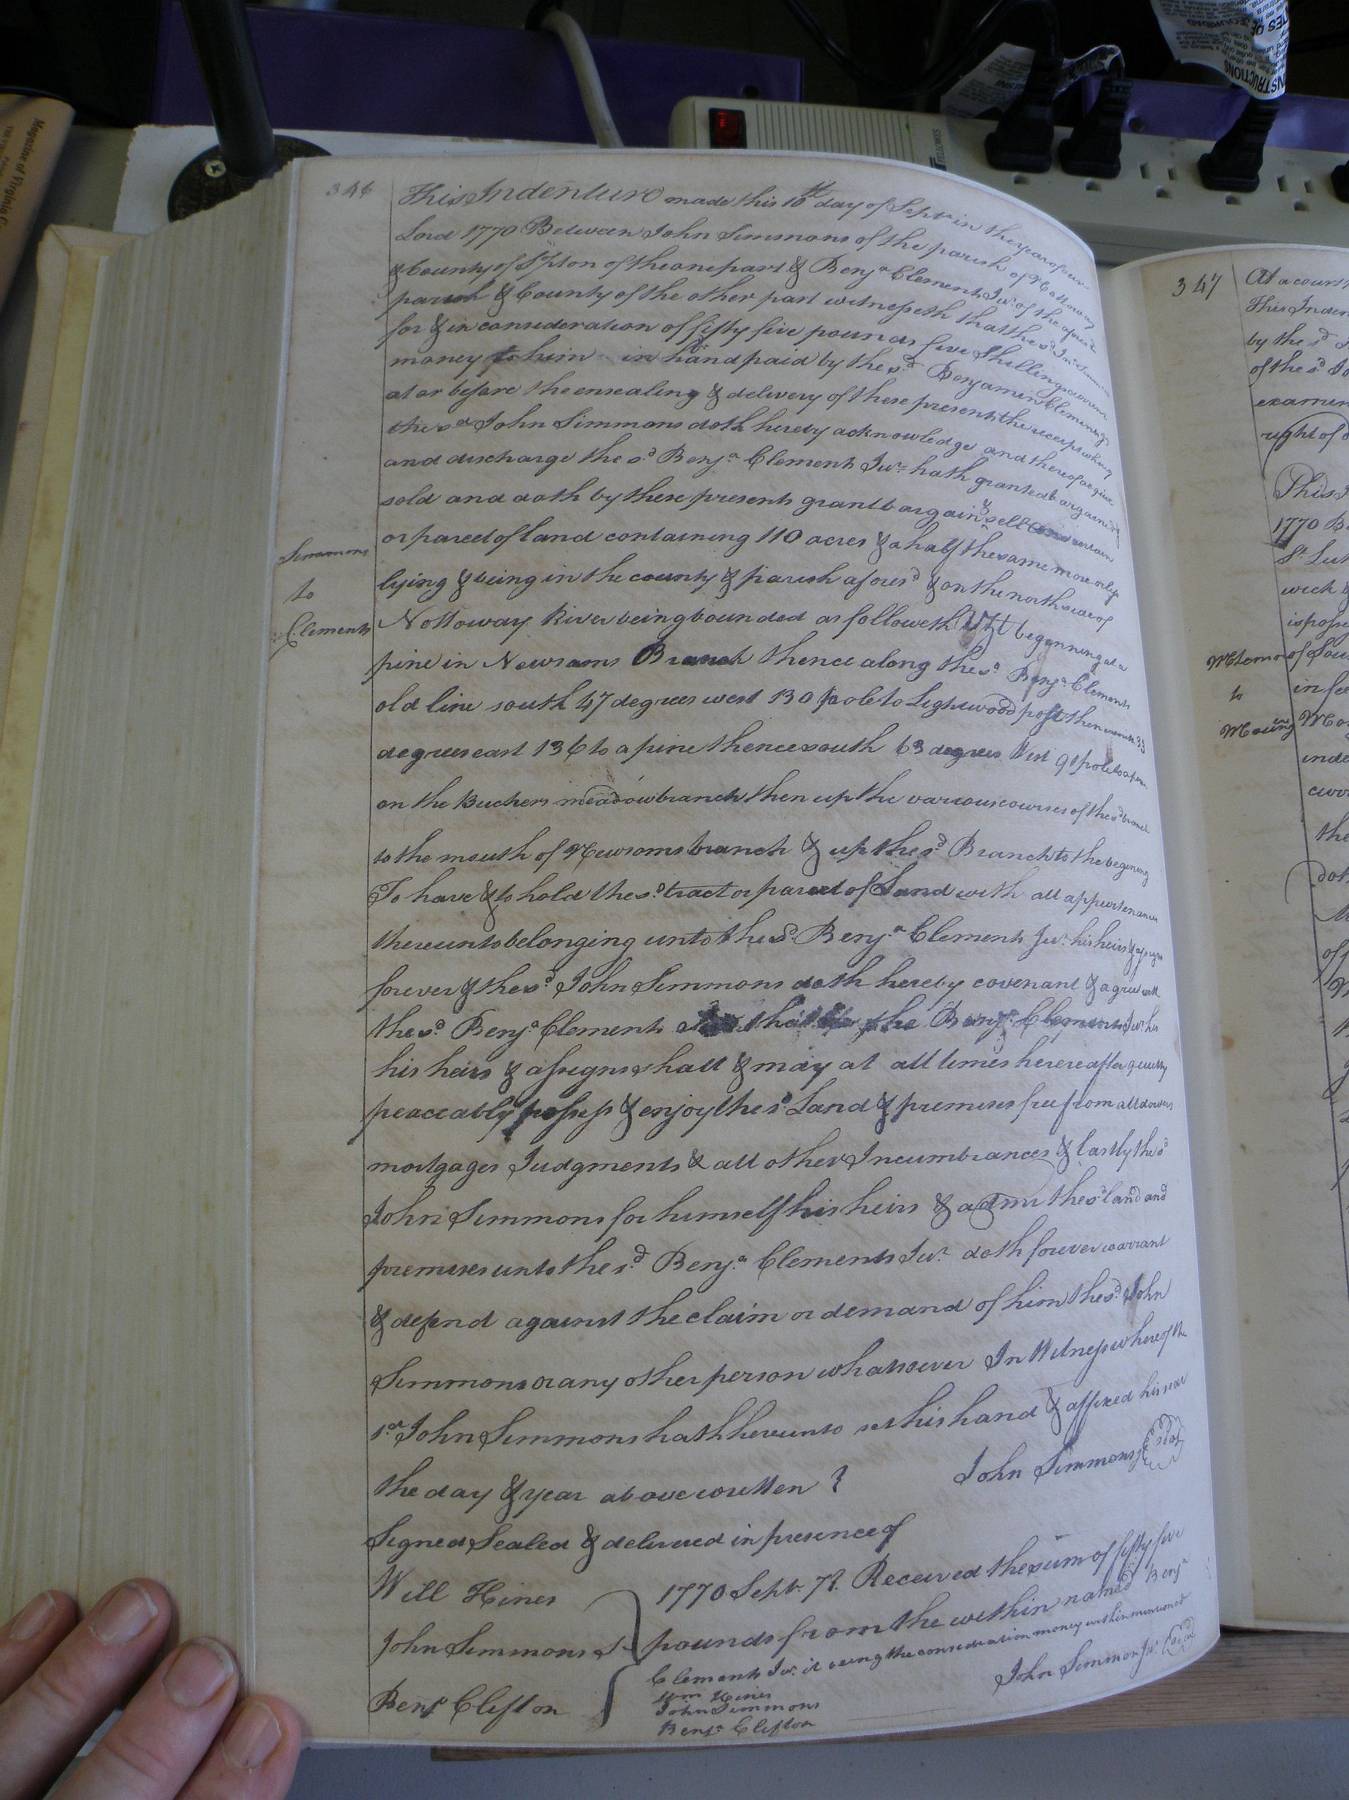 346
This Indenture made this 16th day of Septr in the year of our
Lord 1770 Between John Simmons of the parish of Nottoway
& County of S°pton of the one part & Benja Clements Jur. of the aforesd
parish & County of the other part witnesseth that the sd Jno. Simmons
for & in consideration of fifty five pounds five shillings current
money to him in hand paid by the sd Benjamin Clements Jr
at or before the ensealing & delivery of these presents the receipt whereof
the sd John Simmons doth hereby acknowledge and thereof acquit
and discharge the sd Benja Clements Jur. hath granted bargained
sold and doth by these presents grant bargain & sell one certain
or parcel of land containing 110 acres & a half the same more or less
lying & being in the county & parish aforesd & on the north side of
Nottoway River being bounded as followeth Vizt beginning at a
pine in Newsoms Branch thence along the sd Benja Clements
old line south 47 degrees west 130 pole to Lightwood post then north 33
degrees east 136 to a pine thence south 63 degrees West 98 pole to a pine
on the Buckers meadow branch then up the various courses of the sd branch
to the mouth of Newsoms branch & up the sd Branch to the begening
To have & to hold the sd tract or parcel of Land with all appurtenances
thereunto belonging unto the sd. Benja Clements Jur. his heirs & assigns
forever & the sd John Simmons doth hereby covenant & agree with
the sd Benja Clements that the Benja Clements Jur his
his heirs & assigns shall & may at all times hereafter quietly
peaceably possess & enjoy the sd Land & premises free from all dowers
mortgages Judgments & all other Incumbrances & lastly the sd
John Simmons for himself his heirs & admr the sd land and
premises unto the sd Benja Clements Jur. doth forever warrant
& defend against the claim or demand of him the sd John
Simmons or any other person whatsoever In Witness whereof the
sd John Simmons hath hereunto set his hand & affixed his seal
the day & year above written
John Simmons Seal
Signed Sealed & delivered in presence of
Will Hines
John Simmons
Benja Clifton
1770 Sept. 7?. Received the sum of fifty five
pounds from the within named Benja
Clements Jur. it being the consideration money within mentioned
Wm Hines
John Simmons
Benja Clifton
John Simmons Jur. Seal
Simmons
to
Clements
347
At a court
This Inden
by the sd
of the sd Jo
examin
right of
This
1770 B
St. Luk
wick &
is posse
of Sou
in fe
inde
curr
the
dot
to
Magazine of Virginia
FELLOWES
INSTRUCTIONS